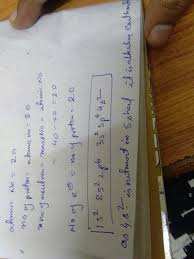 atomic no = 20
no of proton = atomic no = 20
no of neutron = mass no - atomic no
= 40 - 20 = 20
No of e⊖ = no of proton = 20
1s² 2s² 2p⁶ 3s² 3p⁶ 4s²
as 4s² is outmost in s, it is alkaline earth